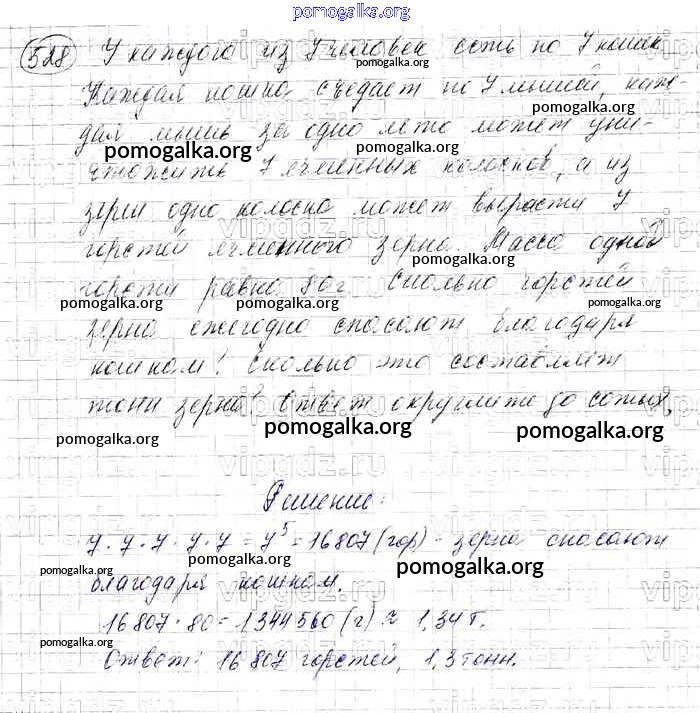 pomogalka.org
528 У каждого из 7 человек есть по 7 кошек.
pomogalka.org
Каждая кошка съедает по 7 мышей, каж-
pomogalka.org
дая мышь за одно лето может уни-
pomogalka.org
pomogalka.org
чтожить 7 ячменных колосков, а из
зерен одно колоска может вырасти 7
горстей ячменного зерна. Масса одной
горсти равна 80 г. Сколько горстей
pomogalka.org pomogalka.org pomogalka.org
зерна ежегодно спасают благодаря
кошкам? Сколько это составляет
vipgdz.ru
тонн зерна? Ответ округлите до сотых.
pomogalka.org pomogalka.org pomogalka.org
vipgdz.ru
Решение:
7·7·7·7·7 = 7⁵ = 16807 (гор) - зерна спасают
pomogalka.org pomogalka.org pomogalka.org
благодаря кошкам.
16807·80 = 1344560 (г) ≈ 1,34 т.
pomogalka.org
Ответ: 16807 горстей, 1,3 тонн.
pomogalka.org pomogalka.org